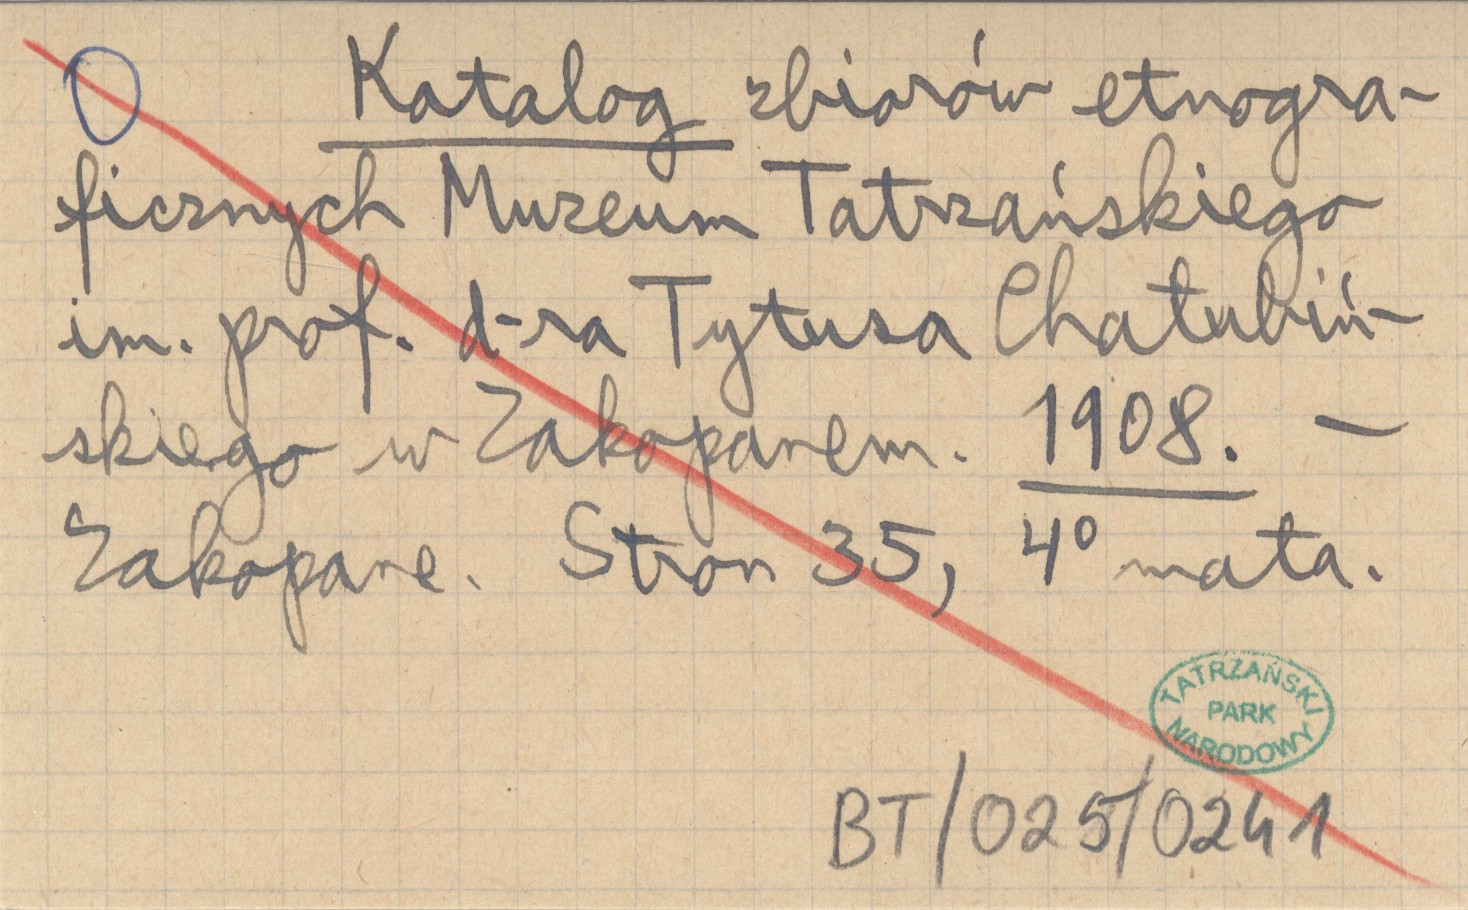 Katalog zbiorów etnogra-
ficznych Muzeum Tatrzańskiego
im. prof. d-ra Tytusa Chałubiń-
skiego w Zakopanem. 1908. —
Zakopane. Stron 35, 4° mała.
TATRZAŃSKI
PARK
NARODOWY
BT/025/0241